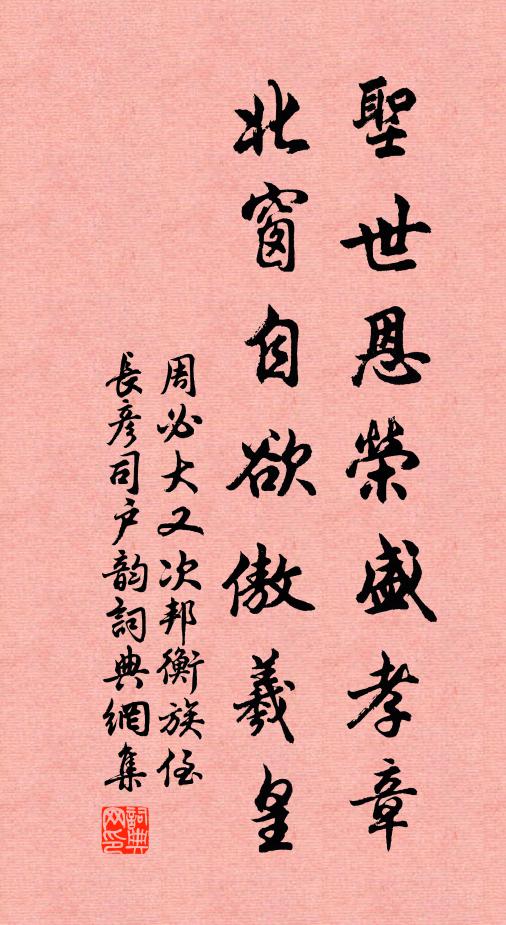 聖世恩榮盛孝章
北窗自欲傲羲皇
周必大又次邦衡族侄
長彥司户韵詞典網集
詞典网印